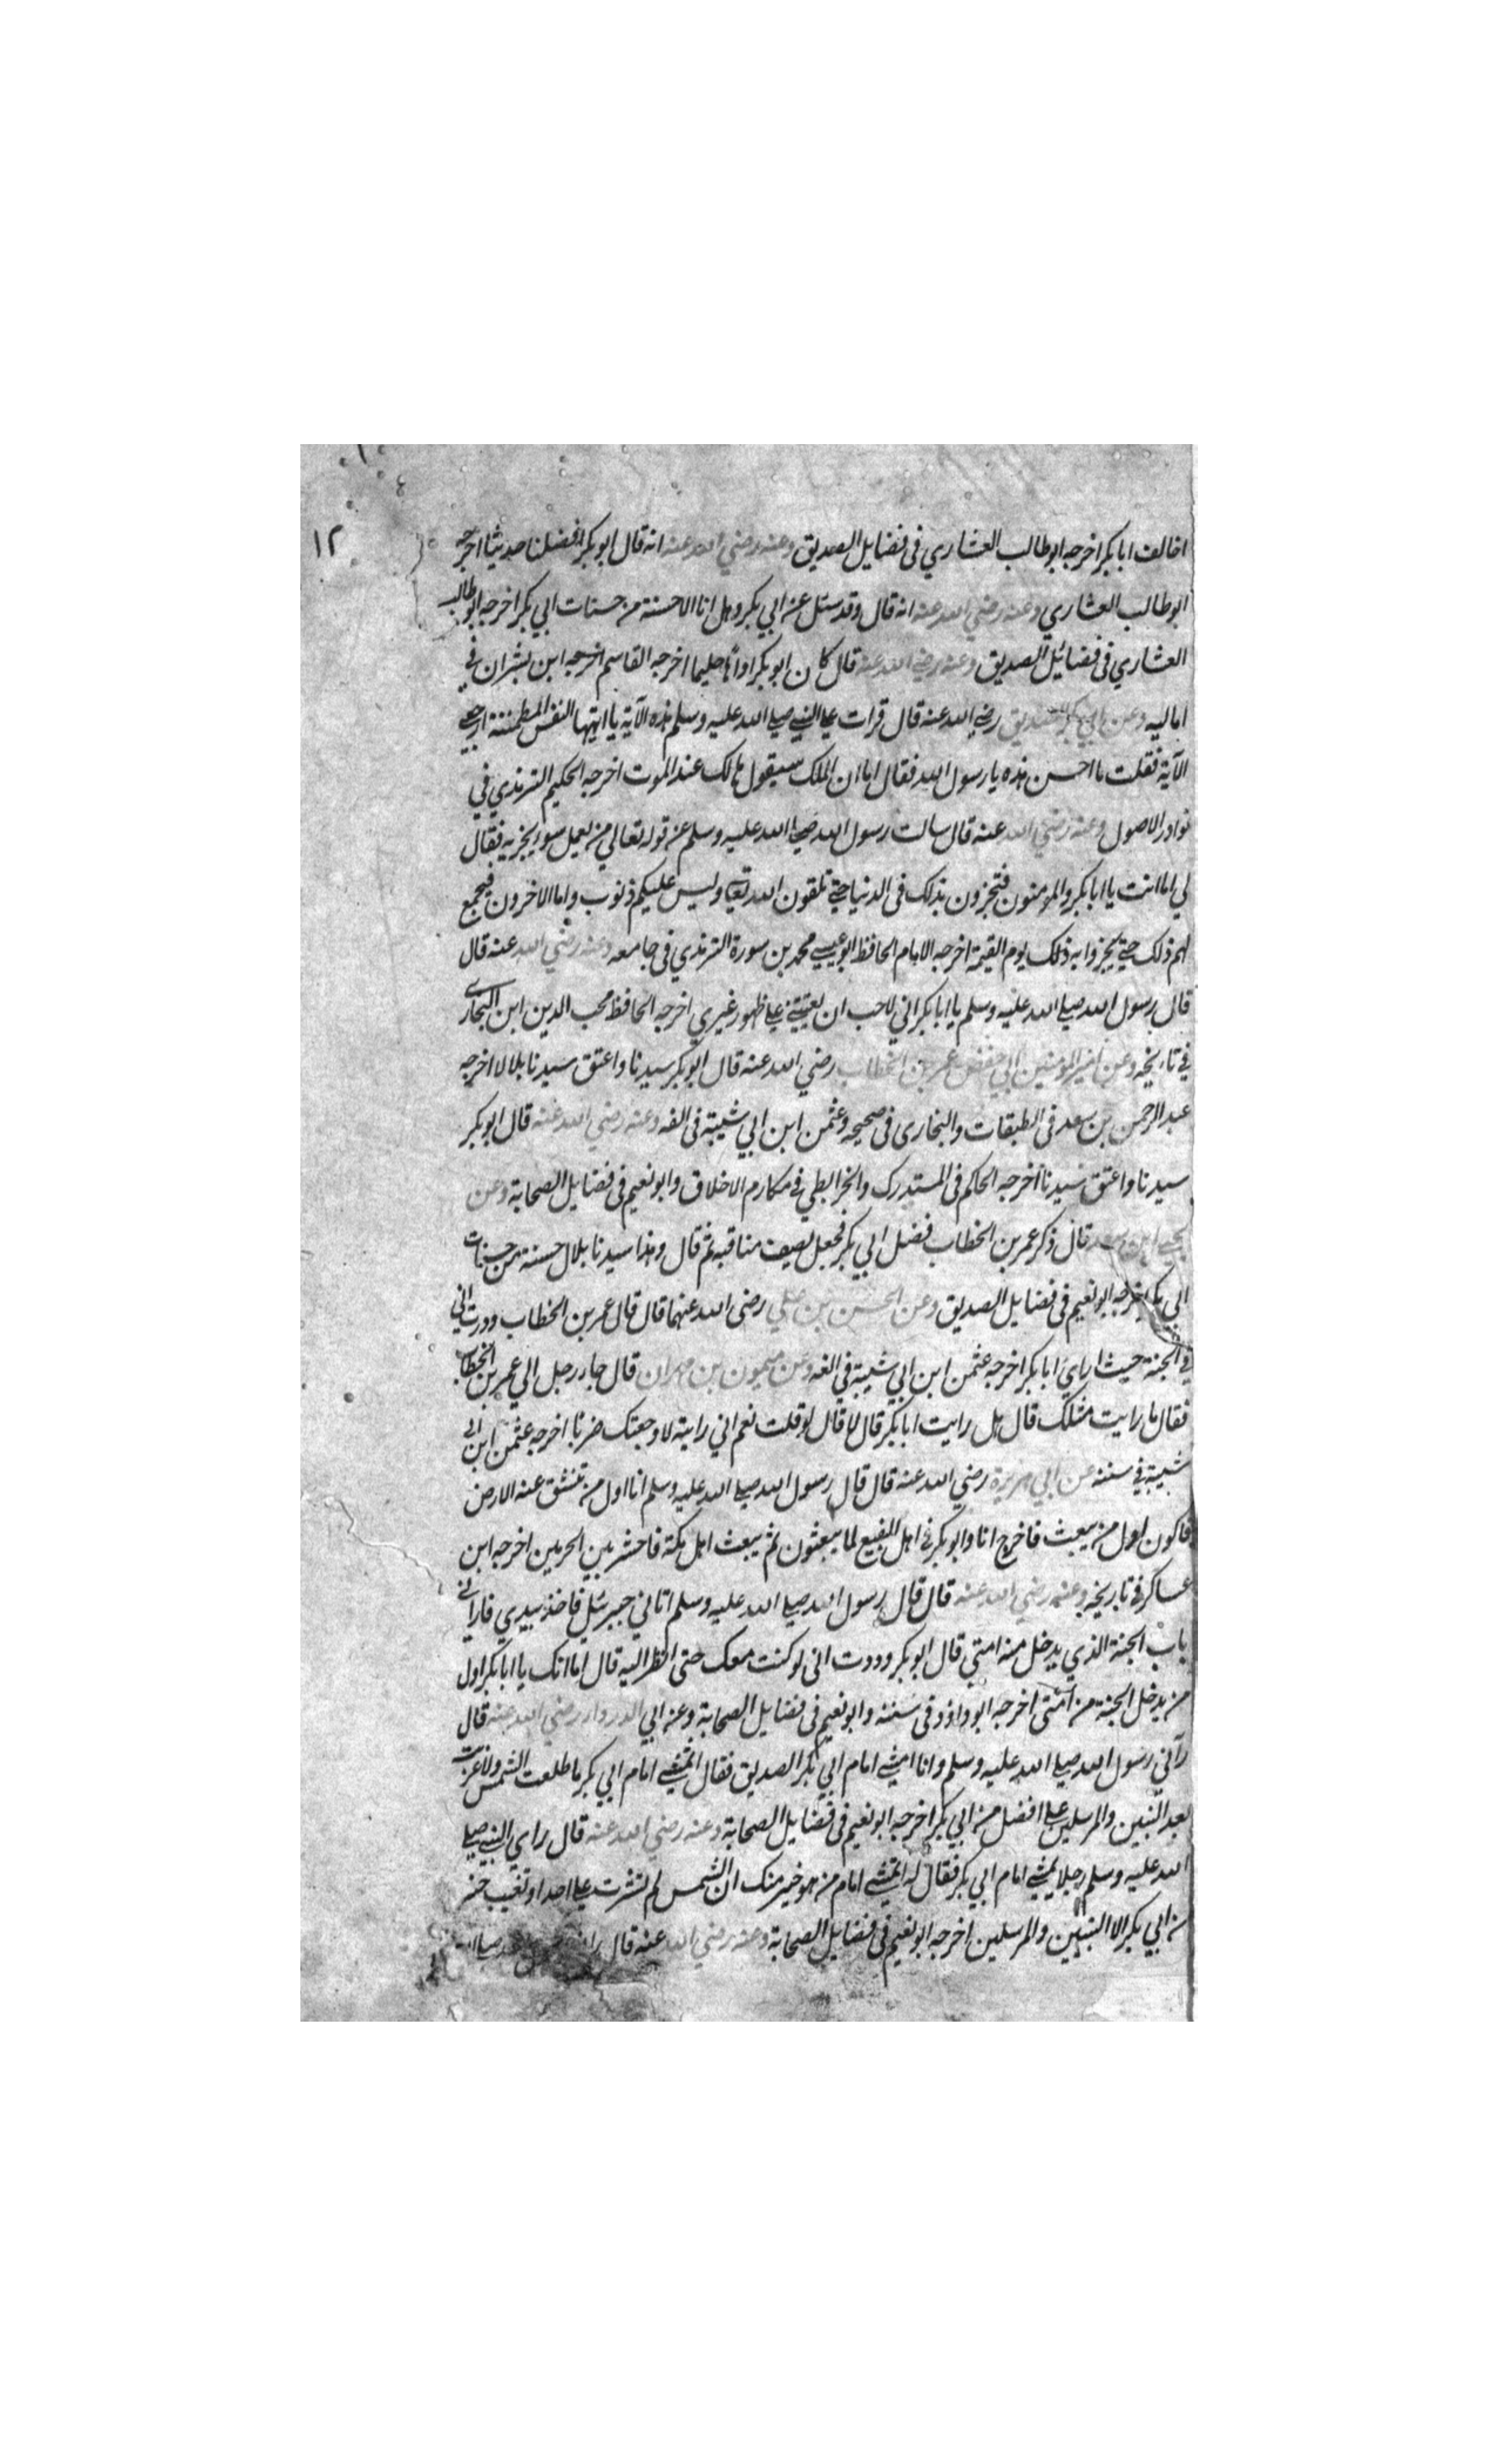 ١٢
اخالف ابا بكر اخرجه ابو طالب العشاري فى فضايل الصديق وعنه رضي الله عنه انه قال ابو بكر افضلنا حديثا اخرجه
ابو طالب العشاري وعنه رضي الله عنه انه قال وقد سئل عن ابي بكر وهل انا الا حسنة من حسنات ابي بكر اخرجه ابو طالب
العشاري فى فضائل الصديق وعنه رضي الله عنه قال كان ابو بكر اواها حليما اخرجه القاسم اخرجه ابن بشران في
اماليه وعن ابي بكر الصديق رضي الله عنه قال قرات على النبي صلى الله عليه وسلم هذه الآية يا ايتها النفس المطمئنة ارجعي
الآية فقلت ما احسن هذه يا رسول الله فقال اما ان الملك سيقولها لك عند الموت اخرجه الحكيم الترمذي في
نوادر الاصول وعنه رضي الله عنه قال سالت رسول الله صلى الله عليه وسلم عن قوله تعالي من يعمل سوء يجز به فقال
لي اما انت يا ابا بكر والمومنون فتجزون بذلك فى الدنيا حتى تلقون الله تعالى وليس عليكم ذنوب واما الاخرون فيجمع
لهم ذلك حتى يجزوا به ذلك يوم القيمة اخرجه الامام الحافظ ابو عيسى محمد بن سورة الترمذي فى جامعه وعنه رضي الله عنه قال
قال رسول الله صلى الله عليه وسلم يا ابا بكر اني لاحب ان على ظهور غيري اخرجه الحافظ محب الدين ابن النجارى
في تاريخه وعن امير المؤمنين ابي حفص عمر بن الخطاب رضي الله عنه قال ابو بكر سيدنا واعتق سيدنا بلالا اخرجه
عبد الرحمن بن سعد فى الطبقات والبخارى فى صحيحه وعثمن ابن ابي شيبة فى الفه وعنه رضي الله عنه قال ابو بكر
سيدنا واعتق سيدنا اخرجه الحاكم فى المستدرك والخرايطي في مكارم الاخلاق وابو نعيم فى فضايل الصحابة وعن
يحيى ابن سعد قال ذكر عمر بن الخطاب فضل ابي بكر فجعل يصف مناقبه ثم قال وهذا سيدنا بلال حسنة من حسنات
ابي بكر اخرجه ابو نعيم فى فضايل الصديق وعن الحسن بن علي رضى الله عنهما قال قال عمر بن الخطاب وودت اني
في الجنة حيث ارايَ ابا بكر اخرجه عثمن ابن ابي شيبة في الفه وعن ميمون بن مهران قال جاء رجل الي عمر بن الخطاب
فقال ما رايت مثلك قال هل رايت ابا بكر قال لا قال لو قلت نعم اني رايته لاوجعتك ضربا اخرجه عثمن ابن ابي
شيبة في سننه عن ابي هريرة رضي الله عنه قال قال رسول الله صلى الله عليه وسلم انا اول من تنشق عنه الارض
فاكون اول من يبعث فاخرج انا وابو بكر في اهل البقيع لما يبعثون ثم يبعث اهل مكة فاحشر بين الحرمين اخرجه ابن
عساكر في تاريخه وعنه رضي الله عنه قال قال رسول الله صلى الله عليه وسلم اتاني جبرئيل فاخذ بيدي فاراني
باب الجنة الذي يدخل منه امتي قال ابو بكر وودت انى لو كنت معك حتى انظر اليه قال اما انك يا ابا بكر اول
من يدخل الجنة من امتى اخرجه ابو داؤد فى سننه وابو نعيم فى فضايل الصحابة وعن ابي الدرداء رضي الله عنه قال
رآني رسول الله صلى الله عليه وسلم وانا امشي امام ابي بكر الصديق فقال اتمشي امام ابي بكر ما طلعت الشمس ولا غربت
بعد النبين والمرسلين على افضل من ابي بكر اخرجه ابو نعيم فى فضايل الصحابة وعنه رضي الله عنه قال راي النبي صلى
الله عليه وسلم رجلا يمشي امام ابي بكر فقال له اتمشي امام من هو خير منك ان الشمس لم تشرق على احد او تغيب خير
من ابي بكر الا النبيين والمرسلين اخرجه ابو نعيم فى فضايل الصحابة وعنه رضي الله عنه قال